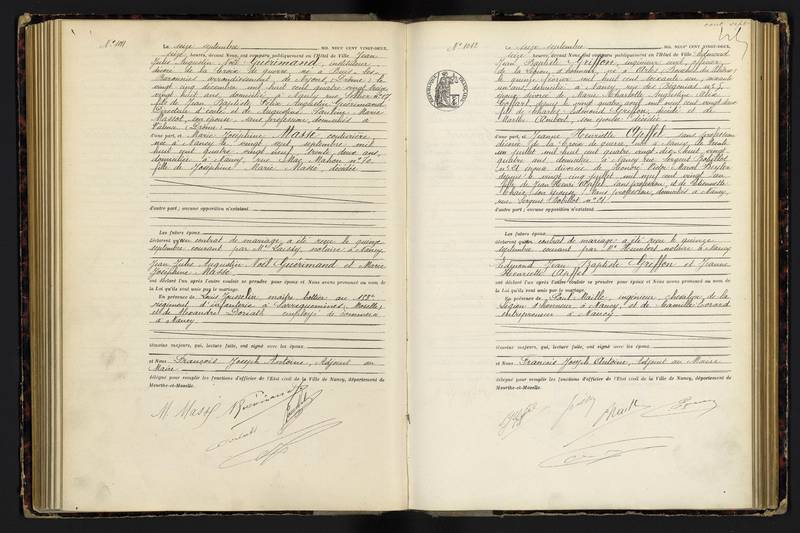 N° 1011
Le seize septembre MIL NEUF CENT VINGT-DEUX,
seize heures, devant Nous, ont comparu publiquement en l'Hôtel de Ville, Jean
Jules Augustin Noël Guérimand, instituteur,
décoré de la Croix de guerre, né à Buis-les-
Baronnies arrondissement de Nyons (Drôme) le
vingt cinq décembre mil huit cent quatre vingt treize
vingt huit ans, domicilié à Nancy rue
fils de Jean Baptiste Félix Augustin Guérimand,
Directeur d'école et de Augustine Pauline Marie
Massot, son épouse, sans profession, domiciliés à
Valence (Drôme)
d'une part, et Marie Joséphine Masse couturière,
née à Nancy le vingt sept septembre mil
huit cent quatre vingt neuf, trente deux ans,
domiciliée à Nancy, rue Mac Mahon n° 70
fille de Joséphine Marie Masse décédée
d'autre part; aucune opposition n'existant
Les futurs époux
déclarent qu'un contrat de mariage a été reçu le quinze
septembre courant par Me notaire à Nancy.
Jean Jules Augustin Noël Guérimand et Marie
Joséphine Masse
ont déclaré l'un après l'autre vouloir se prendre pour époux et Nous avons prononcé au nom de
la Loi qu'ils sont unis par le mariage.
En présence de Louis Jousselin maître bottier au
régiment d'infanterie à Sarreguemines, Moselle,
et de Alexandre Doriath employé de commerce
à Nancy
témoins majeurs, qui, lecture faite, ont signé avec les époux
et Nous François Joseph Antoine, Adjoint au
Maire
délégué pour remplir les fonctions d'officier de l'Etat civil de la Ville de Nancy, département de
Meurthe-et-Moselle.
M Masse
N° 1012
Le seize septembre MIL NEUF CENT VINGT-DEUX,
seize heures, devant Nous, ont comparu publiquement en l'Hôtel de Ville, Edmond
Jean Baptiste Griffon, ingénieur civil, officier
de la Légion d'honneur, né à Arles (Bouches du Rhône)
le quinze février mil huit cent soixante un, soixante
un ans, domicilié à Nancy, rue des Bégonias
époux divorcé de Marie Charlotte
depuis le vingt quatre mil neuf cent vingt deux
fils de Charles Edmond Griffon, décédé et de
Marthe son épouse décédée
d'une part, et Jeanne Henriette Apffel sans profession
décorée de la Croix de guerre, née à Nancy le trente
un juillet mil huit cent quatre vingt dix huit, vingt
quatre ans, domiciliée à Nancy rue Sergent Bobillot
n° 21 épouse divorcée de
depuis le vingt cinq juillet mil neuf cent vingt un
fille de Jean Henri Apffel sans profession, et de
son épouse, sans profession, domiciliés à Nancy,
rue Sergent Bobillot n° 21
d'autre part; aucune opposition n'existant
Les futurs époux
déclarent qu'un contrat de mariage a été reçu le quinze
septembre courant par Me Humbert notaire à Nancy
Edmond Jean Baptiste Griffon et Jeanne
Henriette Apffel
ont déclaré l'un après l'autre vouloir se prendre pour époux et Nous avons prononcé au nom de
la Loi qu'ils sont unis par le mariage.
En présence de Paul Maille ingénieur, chevalier de la
Légion d'honneur à Nancy, et de Camille
entrepreneur à Nancy
témoins majeurs, qui, lecture faite, ont signé avec les époux
et Nous François Joseph Antoine, Adjoint au Maire
délégué pour remplir les fonctions d'officier de l'Etat civil de la Ville de Nancy, département de
Meurthe-et-Moselle.